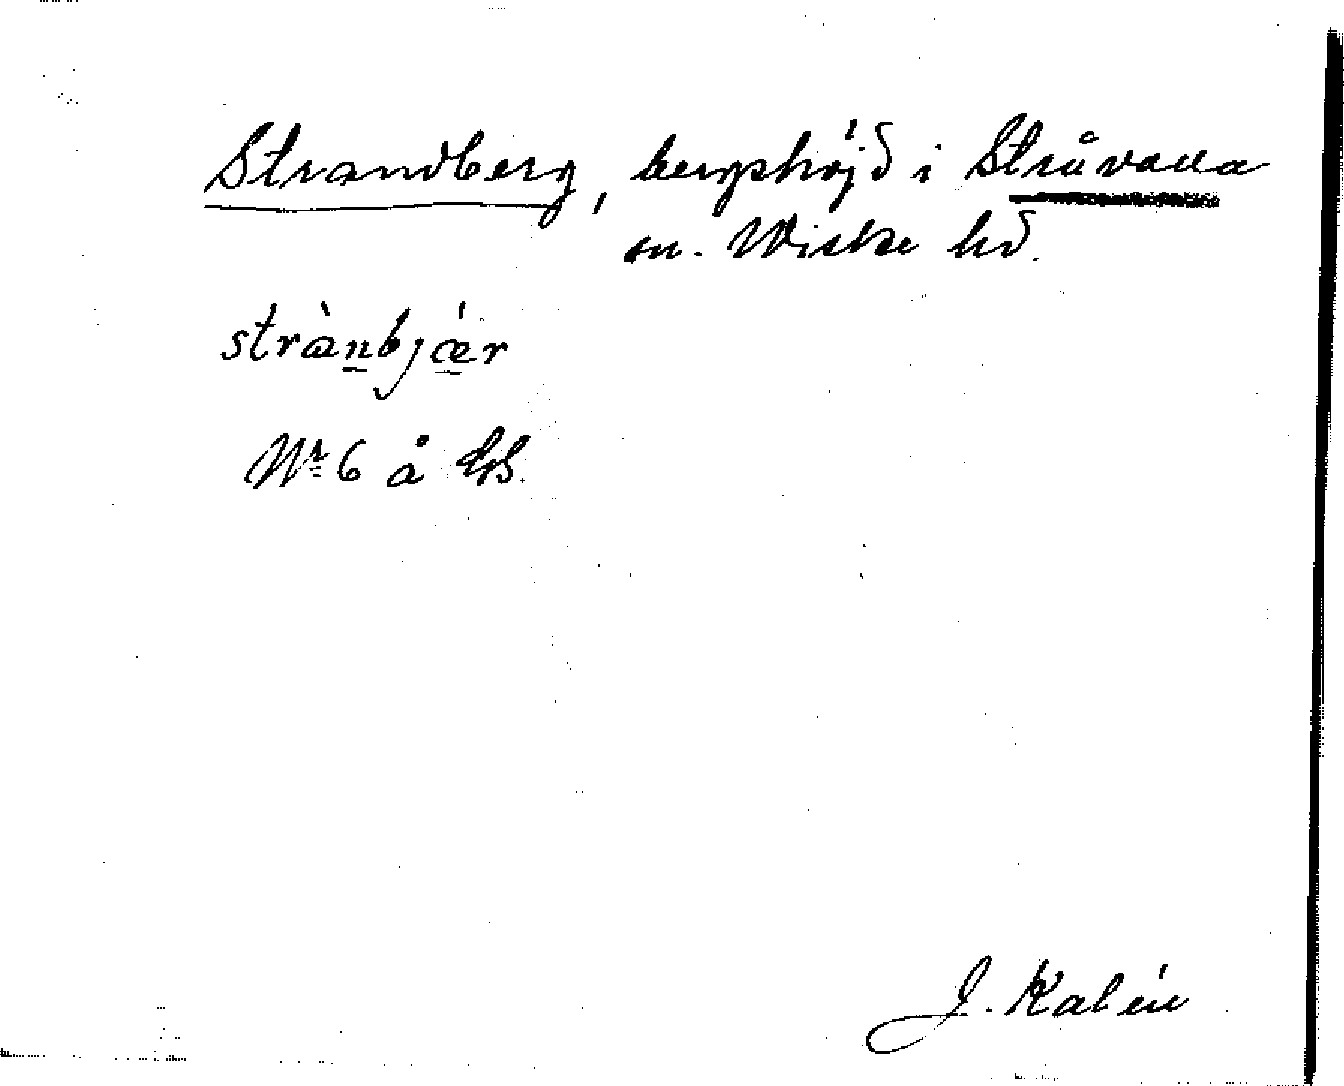 Strandberg, bergshöjd i Stråvalla
sn. Wiske hd.
strànbjǽr
Nr 6 å
J. Kalén